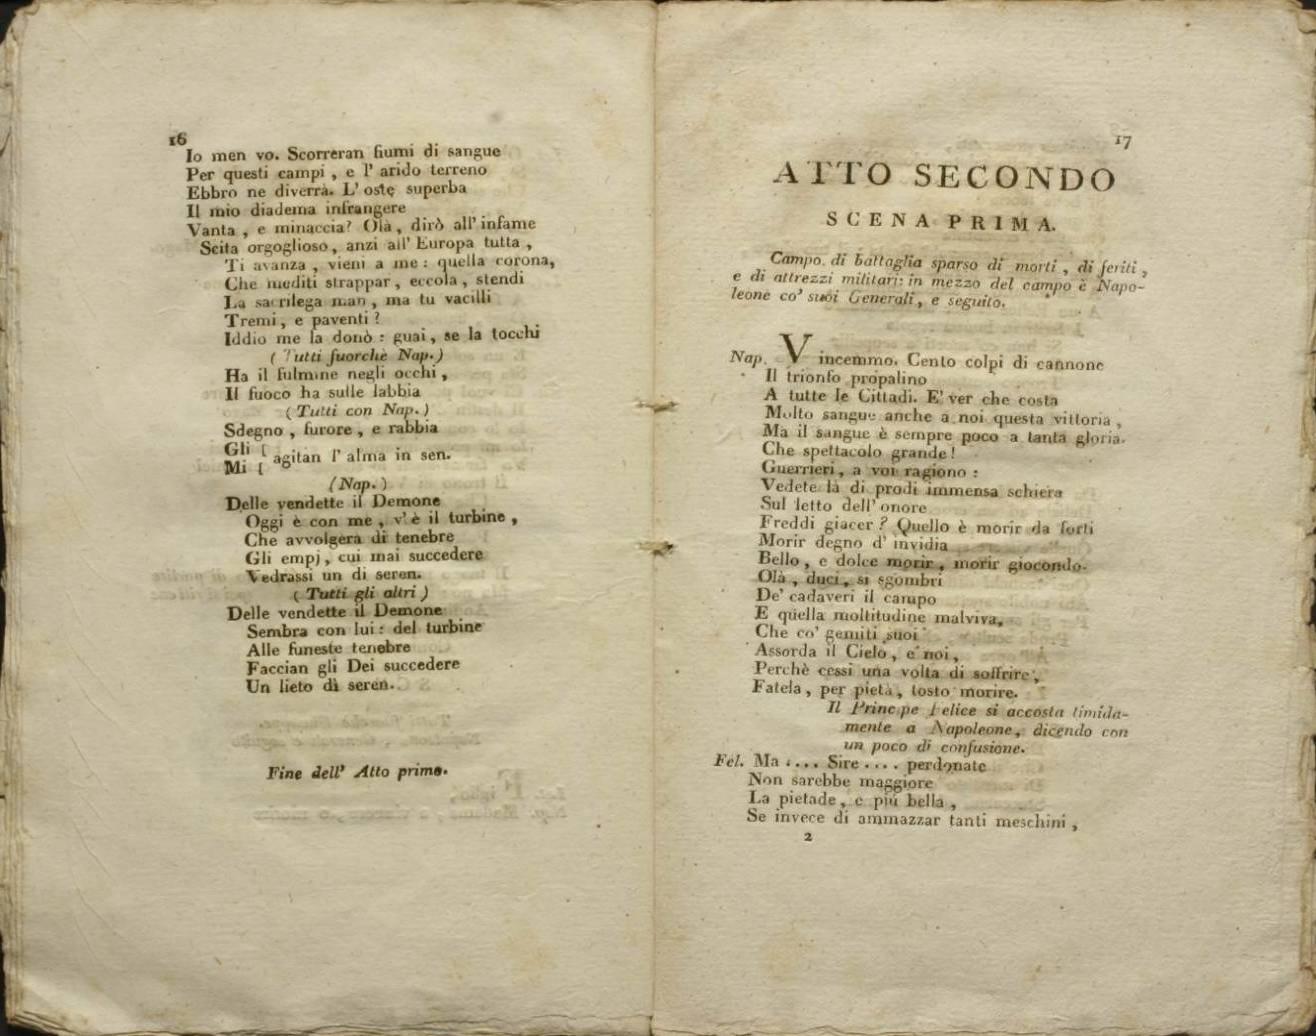 16
Io men vo. Scorreran fiumi di sangue
Per questi campi , e l' arido terreno
Ebbro ne diverrà. L' oste superba
Il mio diadema infrangere
Vanta , e minaccia? Olà , dirò all' infame
Scita orgoglioso, anzi all' Europa tutta ,
Ti avanza , vieni a me : quella corona,
Che mediti strappar , eccola , stendi
La sacrilega man , ma tu vacilli
Tremi , e paventi ?
Iddio me la donò : guai , se la tocchi
( Tutti fuorchè Nap. )
Ha il fulmine negli occhi ,
Il fuoco ha sulle labbia
( Tutti con Nap. )
Sdegno , furore , e rabbia
Gli [ agitan l' alma in sen.
Mi [
(Nap. )
Delle vendette il Demone
Oggi è con me , v' è il turbine ,
Che avvolgerà di tenebre
Gli empj , cui mai succedere
Vedrassi un dì seren.
( Tutti gli altri )
Delle vendette il Demone
Sembra con lui : del turbine
Alle funeste tenebre
Faccian gli Dei succedere
Un lieto dì seren.
Fine dell' Atto primo.
17
ATTO SECONDO
SCENA PRIMA.
Campo di battaglia sparso di morti , di feriti ,
e di attrezzi militari: in mezzo del campo è Napo-
leone co' suoi Generali , e seguito.
Nap. Vincemmo. Cento colpi di cannone
Il trionfo propalino
A tutte le Cittadi. E' ver che costa
Molto sangue anche a noi questa vittoria ,
Ma il sangue è sempre poco a tanta gloria.
Che spettacolo grande !
Guerrieri , a voi ragiono :
Vedete là di prodi immensa schiera
Sul letto dell' onore
Freddi giacer ? Quello è morir da forti
Morir degno d' invidia
Bello , e dolce morir , morir giocondo.
Olà , duci , si sgombri
De' cadaveri il campo
E quella moltitudine malviva,
Che co' gemiti suoi
Assorda il Cielo , e noi ,
Perchè cessi una volta di soffrire ,
Fatela , per pietà , tosto morire.
Il Principe Felice si accosta timida-
mente a Napoleone , dicendo con
un poco di confusione.
Fel. Ma .... Sire .... perdonate
Non sarebbe maggiore
La pietade , e più bella ,
Se invece di ammazzar tanti meschini ,
2